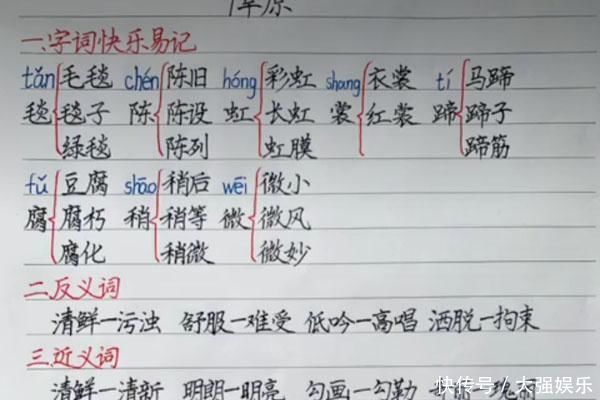 草原
一.字词快乐易记
tǎn 毛毯 chén 陈旧 hóng 彩虹 shang 衣裳 tí 马蹄
毯 毯子 陈 陈设 虹 长虹 裳 红裳 蹄 蹄子
绿毯 陈列 虹膜 蹄筋
fǔ 豆腐 shāo 稍后 wēi 微小
腐 腐朽 稍 稍等 微 微风
腐化 稍微 微妙
二.反义词
清鲜—污浊 舒服—难受 低吟—高唱 洒脱—拘束
三.近义词
清鲜—清新 明朗—明亮 勾画—勾勒
快传号／大强娱乐